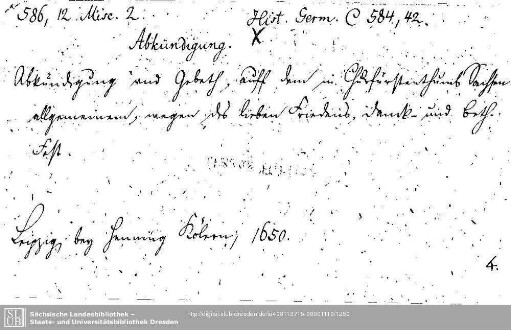 586, 12. Misc. 2. Hist. Germ. C 584, 42.
X
Abkündigung.
Abkündigung und Gebeth, auff dem in Churfürstenthums Sachsen
allgemeinem, wegen des lieben Friedens, Danck- und Beth-
Fest.
Leipzig, bey Henning Kölern, 1650.
4.
Sächsische Landesbibliothek –
Staats- und Universitätsbibliothek Dresden